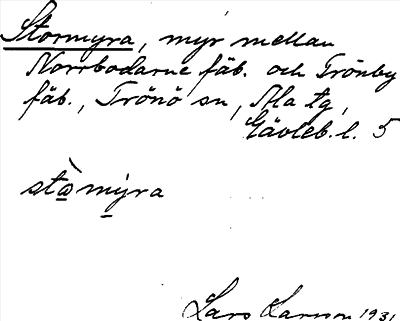 Stormyra, myr mellan
Norrbodarne fäb. och Trönby
fäb., Trönö sn, Ala tg,
Gävleb. l. 5
stɷ̀mýra
Lars Larsson 1931